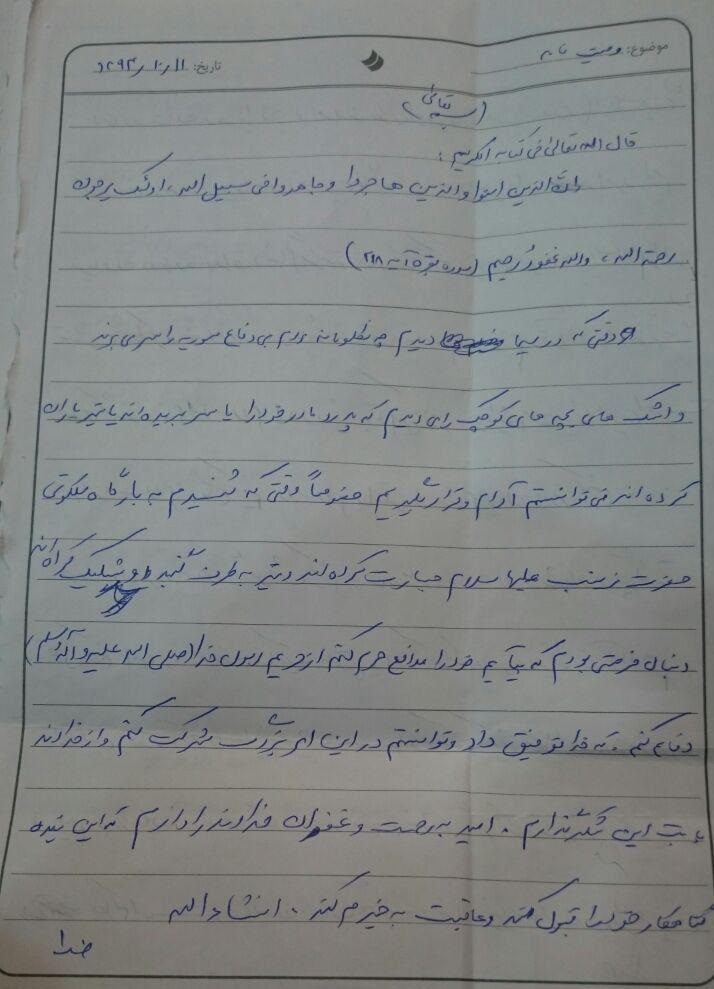 موضوع: وصیت نامه
تاریخ: ۱۳۹۴/۱۰/۱۱
(بسمه تعالی)
قال الله تعالی فی کتابه الکریم:
انّ الذین امنوا والذین هاجروا و جاهدوا فی سبیل الله، اولئک یرجون
رحمة الله، والله غفورٌ رحیم (سوره بقره آیه ۲۱۸)
وقتی که در سیما دیدم چه مظلومانه مردم بی دفاع سوریه را سر می برند
و اشک های بچه های کوچک را می دیدم که پدر و مادر خود را یا سر بریده اند یا تیر باران
کرده اند نمی توانستم آرام و قرار بگیریم خصوصاً وقتی که شنیدم به بارگاه ملکوتی
حضرت زینب علیها سلام جسارت کرده اند و تیر به طرف گنبد شلیک کرده اند
دنبال فرصتی بودم که بیآیم خود را مدافع حرم کنم از حریم رسول خدا (صلی الله علیه و آله وسلم)
دفاع کنم. که خدا توفیق داد و توانستم در این امر بزرگ شرکت کنم و از خداوند
بابت این شکرگذارم. امید به رحمت و غفران خداوند را دارم که این بنده
گناهکار خود را قبول کند و عاقبت به خیرم کند. انشاء الله
خدا